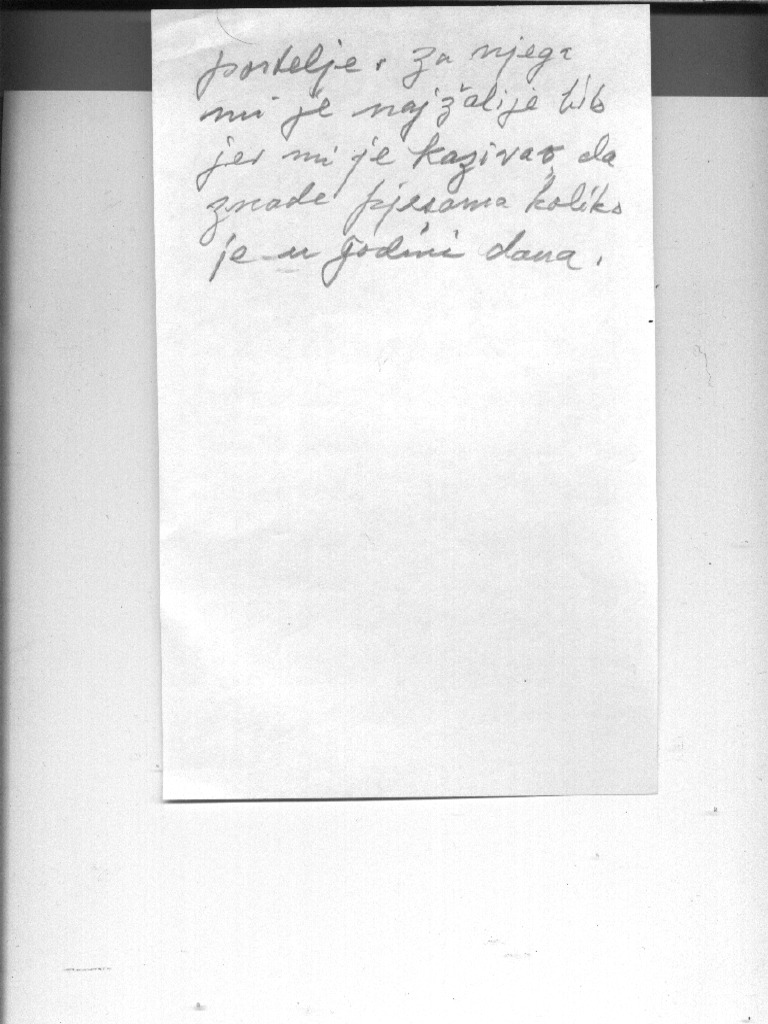 postelje. Za njega
mi je najžalije bilo
jer mi je kazivao da
znade pjesama koliko
je u godini dana.